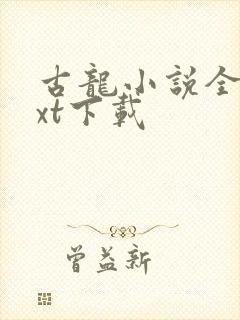 古龍小說全
xt下載
曾益新